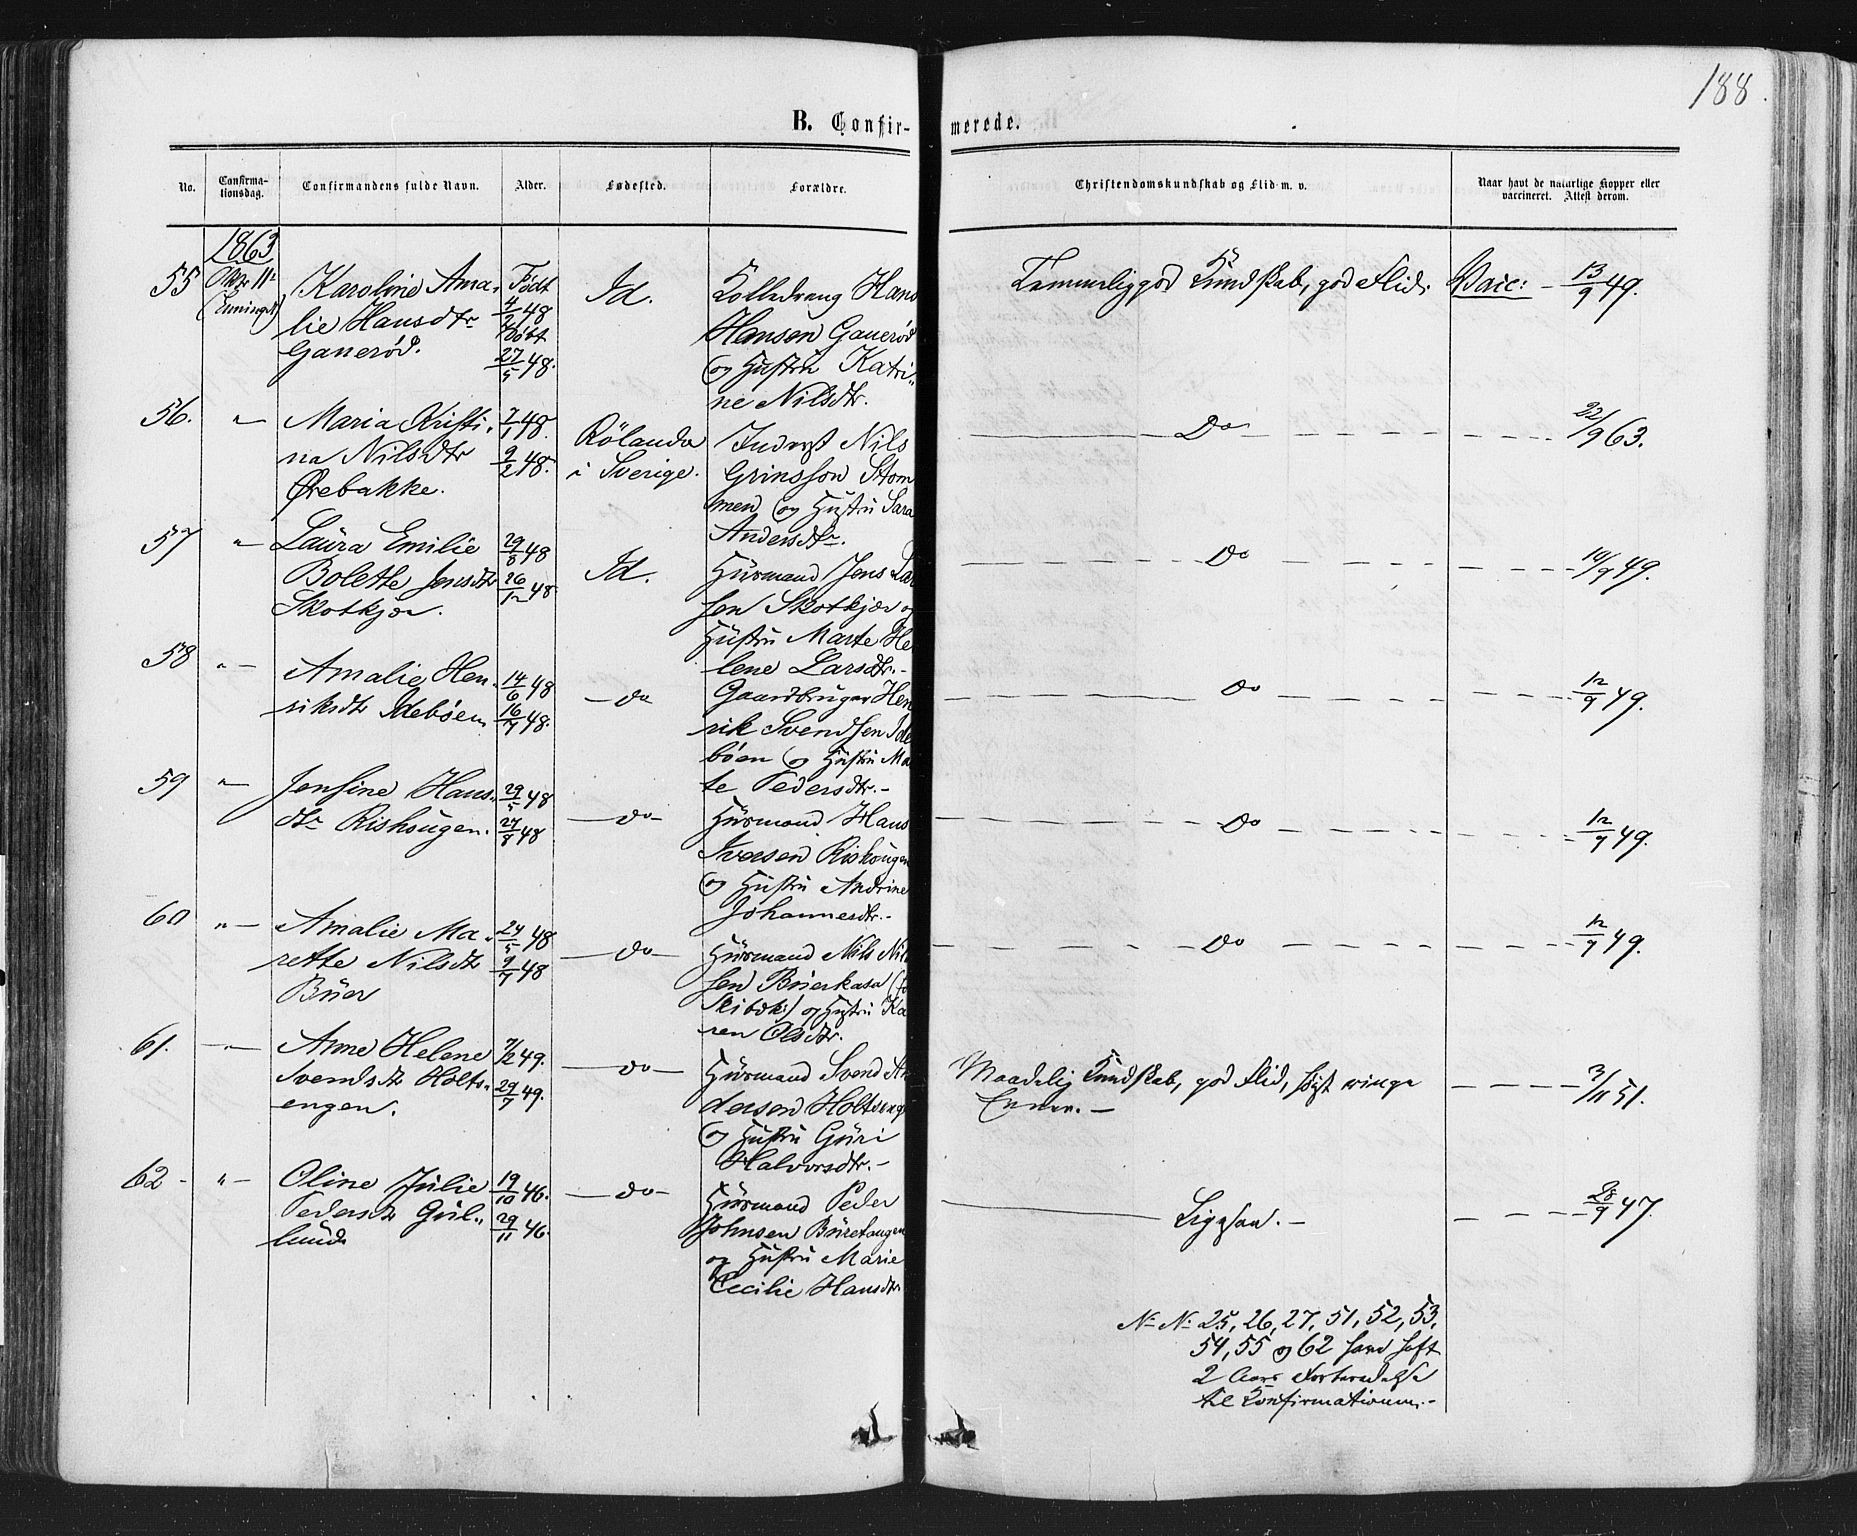 188.
B. Confir-
merede.
No.
Confirma-
tionsdag.
Confirmandens fulde Navn.
Alder.
Fødested.
Forældre.
Christendomskundskab og Flid m. v.
Naar havt de naturlige Kopper eller
vaccineret. Attest derom.
1863
55
Oktbr 11te
(Enningd.)
Karoline Ama-
lie Hansdtr
Ganerød.
Født
4/2 48
Døbt
27/5 48.
Id.
Hans
Hansen Ganerød
og Hustru Katri-
ne Nilsdtr.
Temmelig god Kundskab, god Flid.
Vacc: 13/9 49.
56.
"
Maria Kristi-
na Nilsdtr
Ørebakke.
7/1 48.
9/2 48.
Rölanda
i Sverige.
Inderst Nils
Grinsson Stom
men og Hustru Sara
Andersdtr.
Do
22/9 63.
57
"
Laura Emilie
Bolette Jensdtr
Skotkjær.
29/8 48
26/12 48
Id.
Husmand Jens Lar
sen Skotkjær og
Hustru Marte He
lene Larsdtr.
Do
14/9 49.
58
"
Amalie Hen-
riksdtr Idebøen
14/6 48
16/7 48.
do
Gaardbruger Hen
rik Svendsen Ide
bøen og Hustru Ma
te Pedersdtr.
Do
12/9 49.
59
"
Jensine Hans-
dtr Rishougen.
29/5 48
27/8 48
do
Husmand Hans
Iversen Rishougen
og Hustru Andrine
Johannesdtr.
Do
12/9 49.
60
"
Amalie Ma-
rette Nilsdtr
Buer
24/5 48
9/7 48
do
Husmand Nils Nil
sen Buerkasa
og Hustru Ka
ren Olsdtr.
Do
12/9 49.
61.
"
Anne Helene
Svendsdtr Holts-
engen.
7/2 49.
29/7 49.
do
Husmand Svend An
dersen Holtseng
og Hustru Guri
Halvorsdtr.
Maadelig Kundskab, god Flid, høist ringe
Evner.
3/11 51.
62
"
Oline Julie
Pedersdtr Gul-
lund
19/10 46.
29/11 46.
do
Husmand Peder
Johnsen Buretangen
og Hustru Marie
Cecilie Hansdtr
Ligesaa.
28/9 47.
No No 25, 26, 27, 51, 52, 53,
54, 55 og 62 have havt
2 Aars Forberedelse
til Konfirmationen.